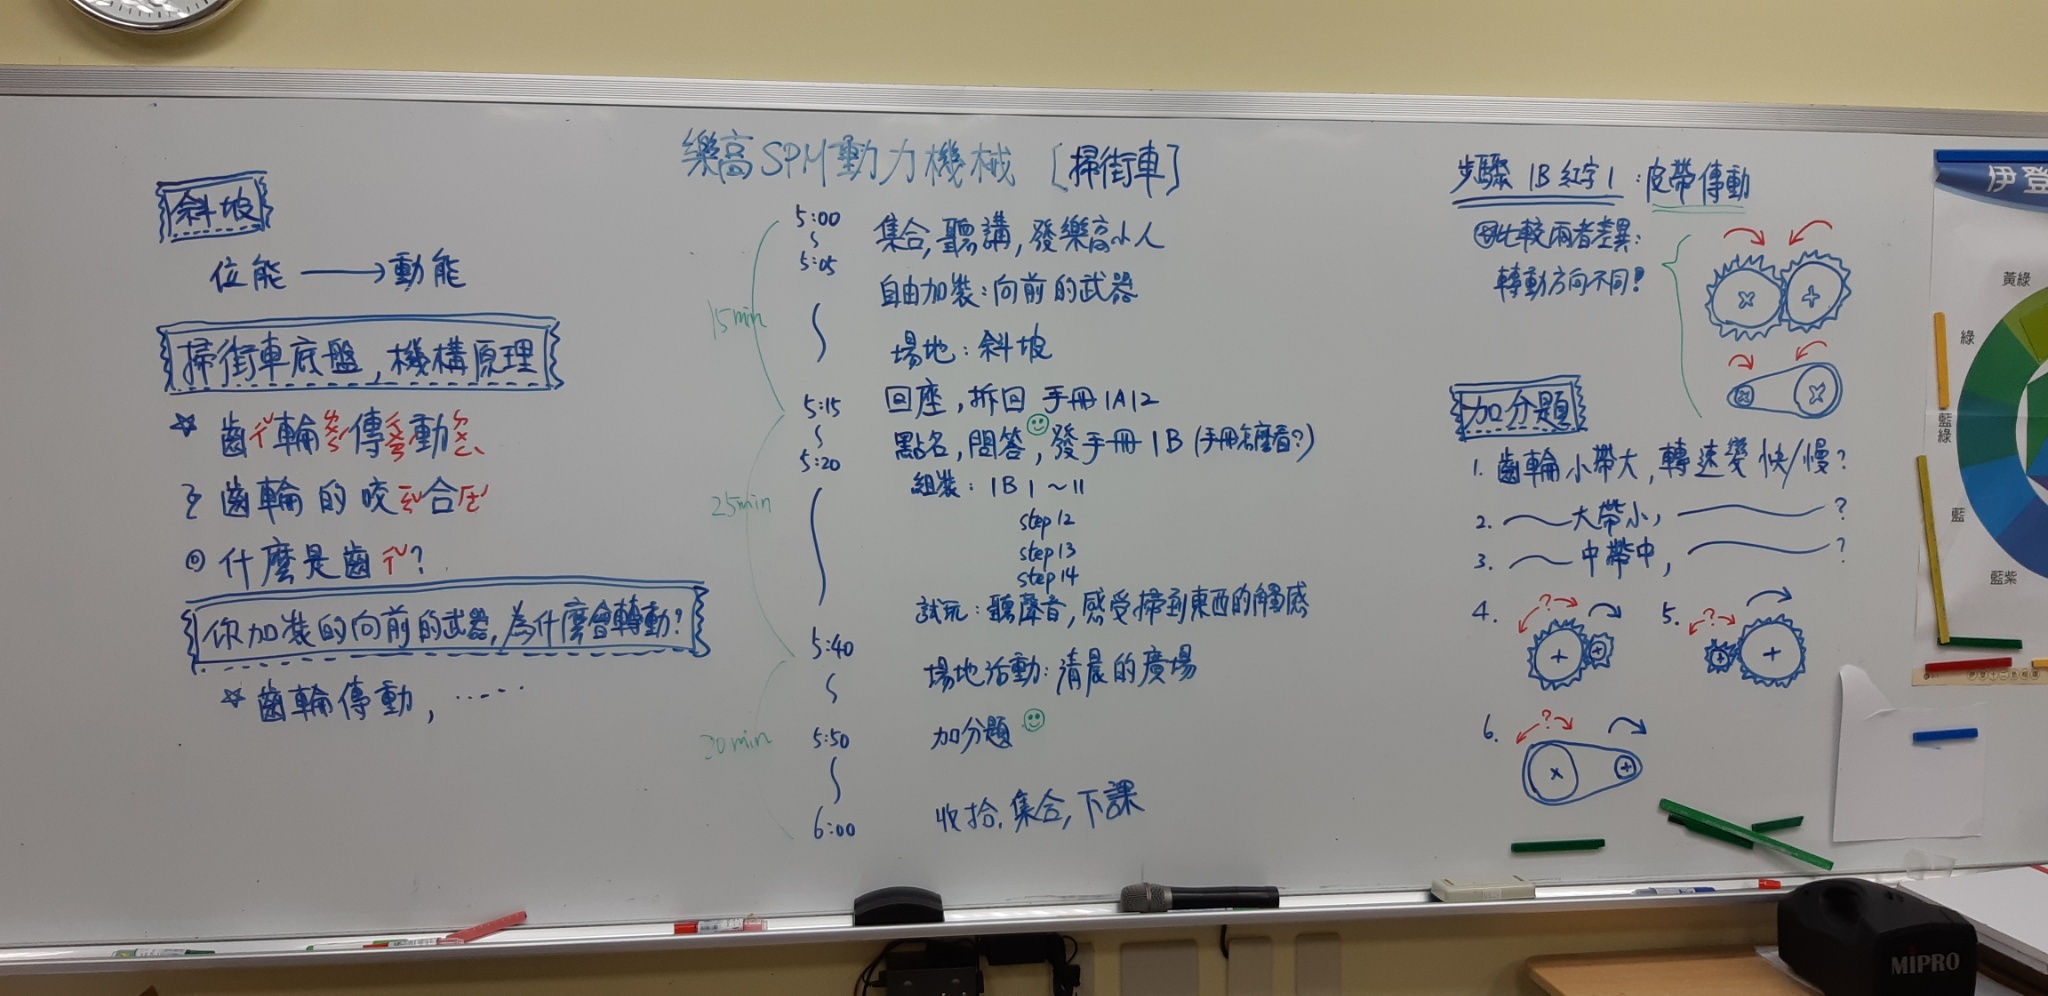 樂高SPM動力機械 [掃街車]
斜坡
位能 → 動能
掃街車底盤, 機構原理
☆ 齒ㄔˇ輪ㄌㄨㄣˊ傳ㄔㄨㄢˊ動ㄉㄨㄥˋ
齒輪的咬ㄧㄠˇ合ㄏㄜˊ
◎ 什麼是齒ㄔˇ?
你加裝的向前的武器, 為什麼會轉動?
☆ 齒輪傳動, ……
15min
25min
20min
5:00
~
5:05
集合, 聽講, 發樂高小人
自由加裝: 向前的武器
場地: 斜坡
5:15
~
5:20
回座, 拆回 手冊1A12
點名, 問答, 發手冊1B (手冊怎麼看?)
組裝: 1B 1~11
step 12
step 13
step 14
試玩: 聽聲音, 感受掃到東西的觸感
5:40
場地活動: 清晨的廣場
5:50
加分題
6:00
收拾, 集合, 下課
步驟 1B 紅字1: 皮帶傳動
比較兩者差異:
轉動方向不同!
加分題
1. 齒輪小帶大, 轉速變快/慢?
2. ~大帶小, ~?
3. ~中帶中, ~?
4. ?
5. ?
6. ?
伊登
黃綠
綠
藍綠
藍
藍紫
MIPRO